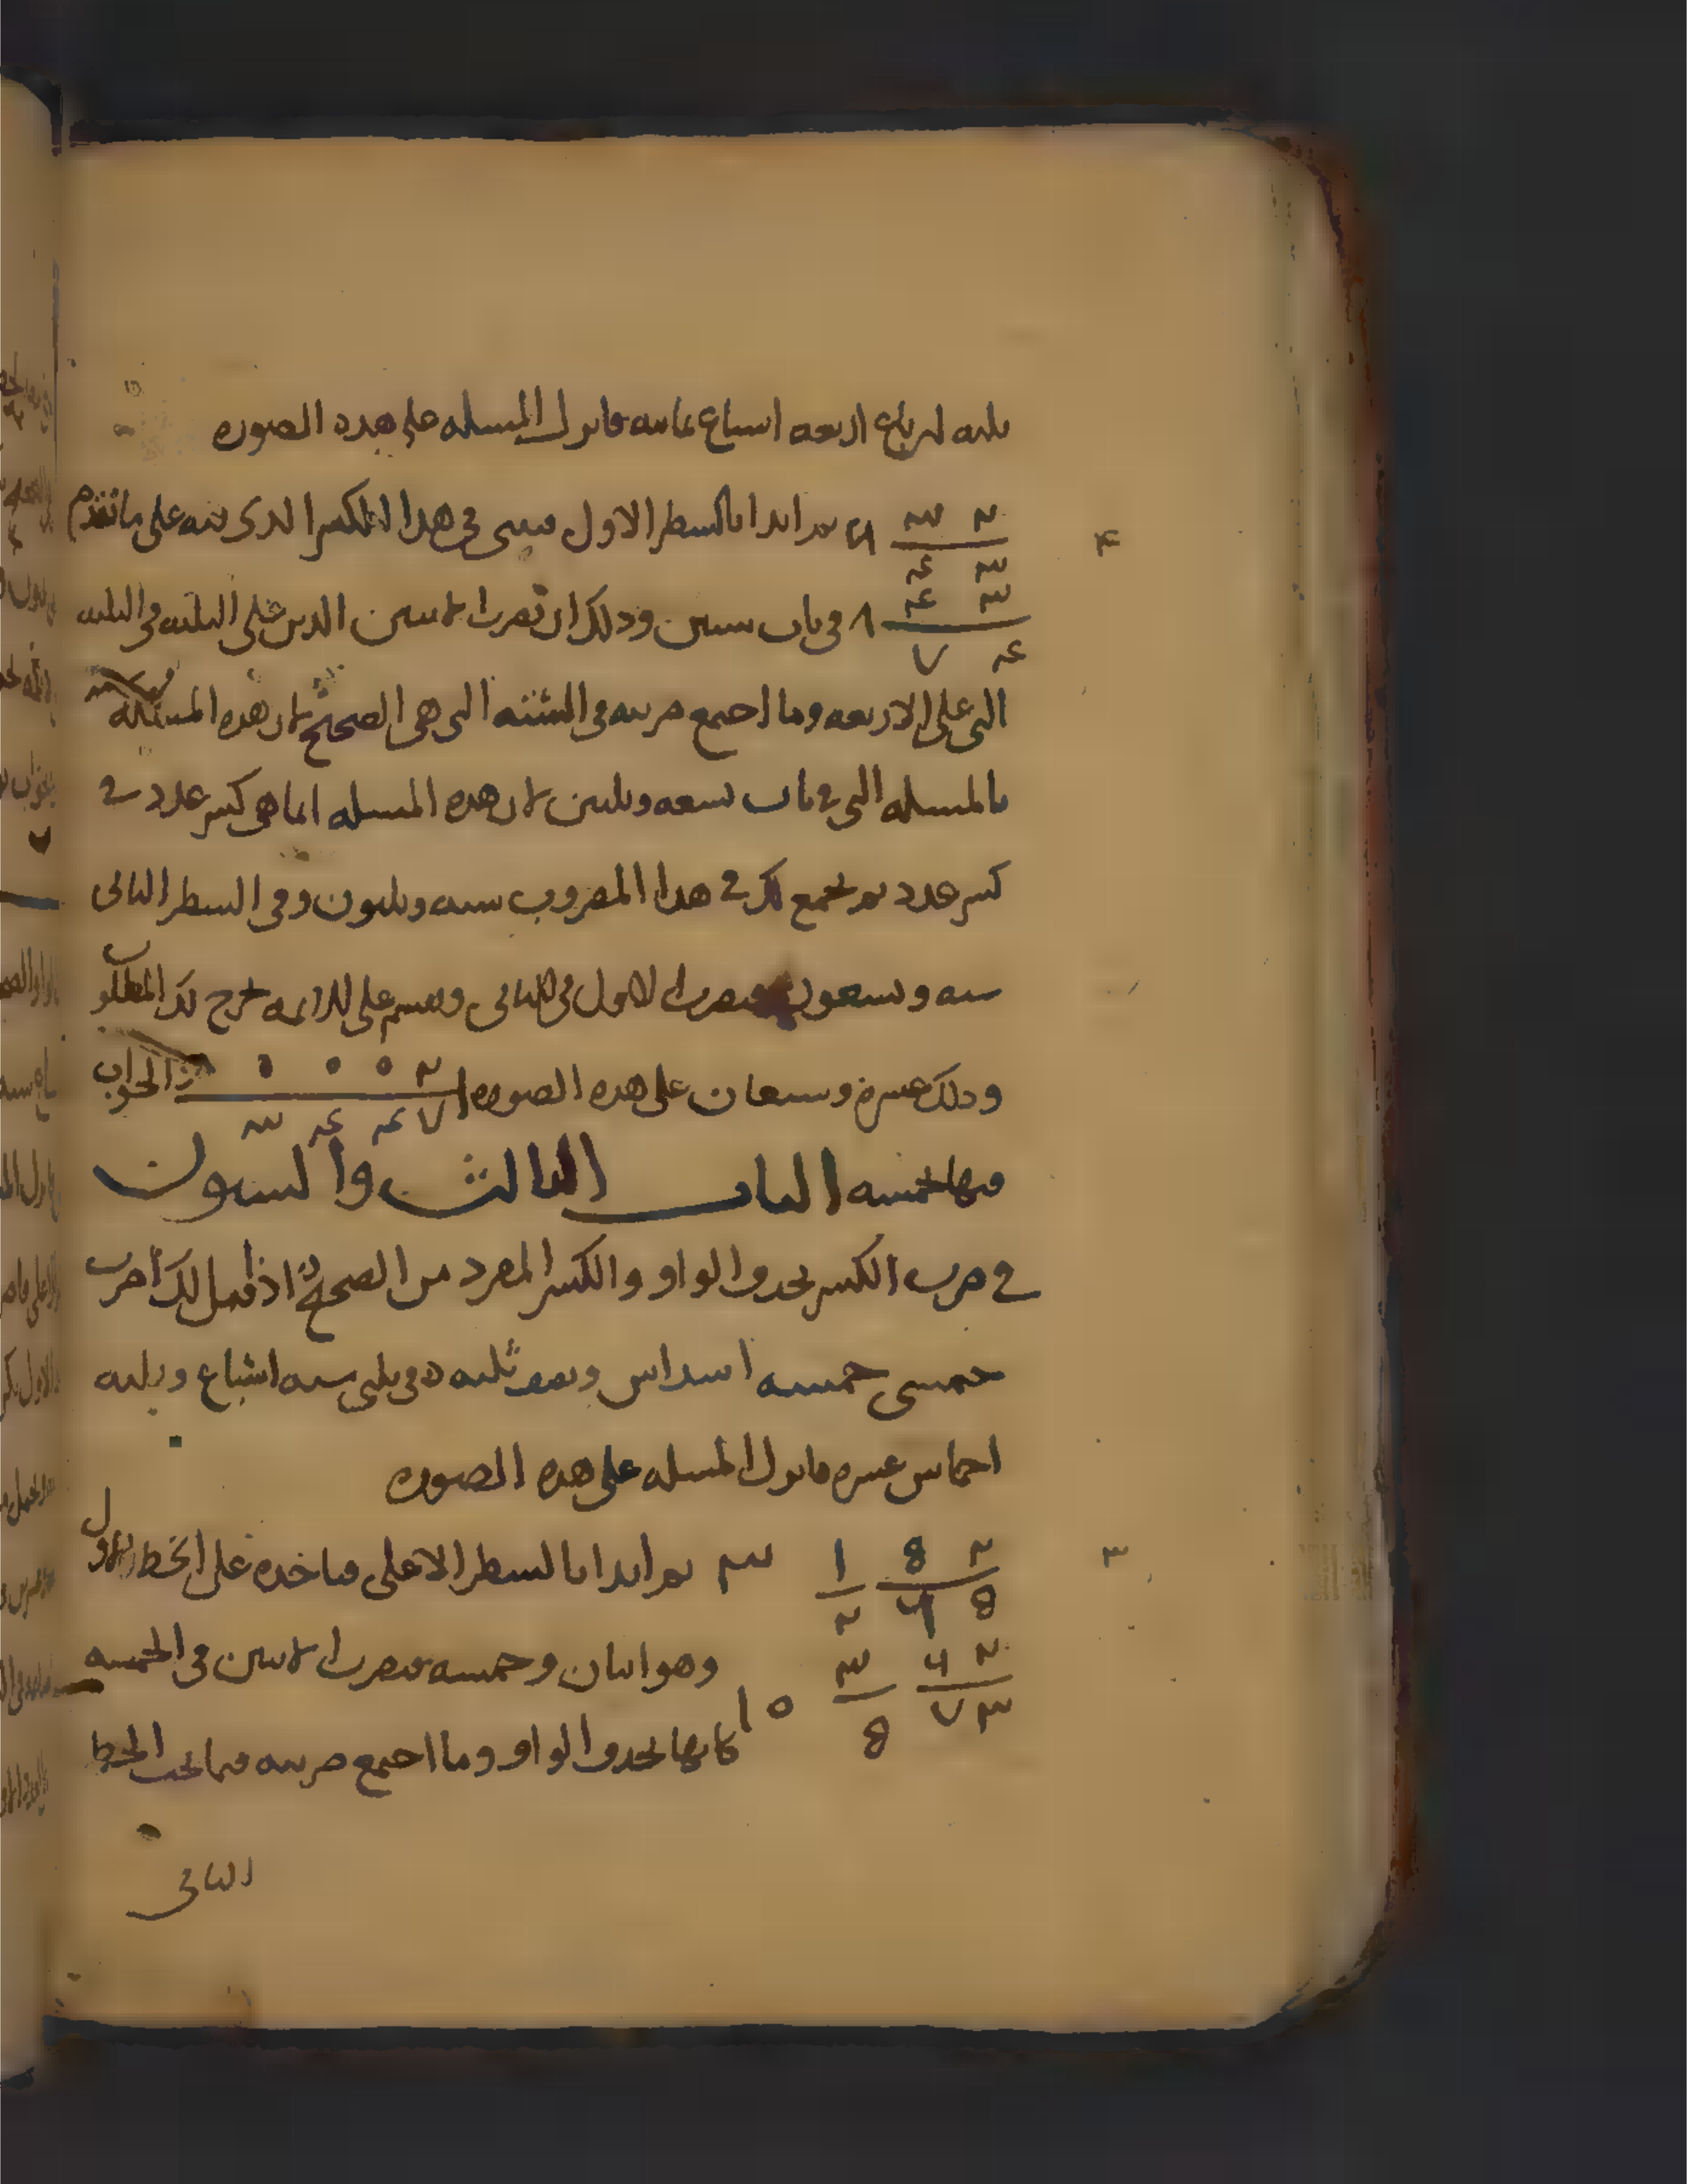 ثلثه ارباع اربعه اسباع ثمانيه فانزل المسله على هده الصوره
٢ ٣ / ٣ ٤ ٦ ثم ابدا بالسطر الاول فتمشى فى هدا الكسر الدى فيه على ما تقدم
٣ ٤ / ٤ ٧ ٨ فى باب ستين ودلك ان تضرب الاثنين الدين على الثلثه فى الثلثه
التى على الاربعه وما اجتمع ضربته فى الستة التى هى الصحيح لان هده المسئلة
بالمسله التى فى باب تسعه وثلثين لان هده المسله انما هى كسر عدد فى
كسر عدد ثم يجمع لك فى هدا المضروب سته وثلثون وفى السطر الثانى
سته وتسعون فتضرب الاول فى الثانى وتقسم على الائمه يخرج لك المطلوب
ودلك عشرة وسبعان على هده الصوره ٢ ٠ ٠ ٠ / ٧ ٤ ٤ ٣ الجواب
فيها خمسه الباب الثالث والستون
فى ضرب الكسر بحدو الواو والكسر المفرد من الصحيح اذا قيل لك اضرب
خمسى خمسه اسداس ونصف ثلثه فى ثلثى سته اسباع وثلثه
اخماس عشره فانزل المسله على هده الصوره
٢ 8 / 8 ٦ ١ / ٢ ٣ ثم ابدا بالسطر الاعلى فما تجده على الخط الاول
وهو اثنان وخمسه فتضرب الاثنين فى الخمسه
٢ ٦ / ٣ ٧ ٣ / 8 ١٠
كانها بحدو الواو وما اجتمع ضربته فيما تحت الخط
الثانى